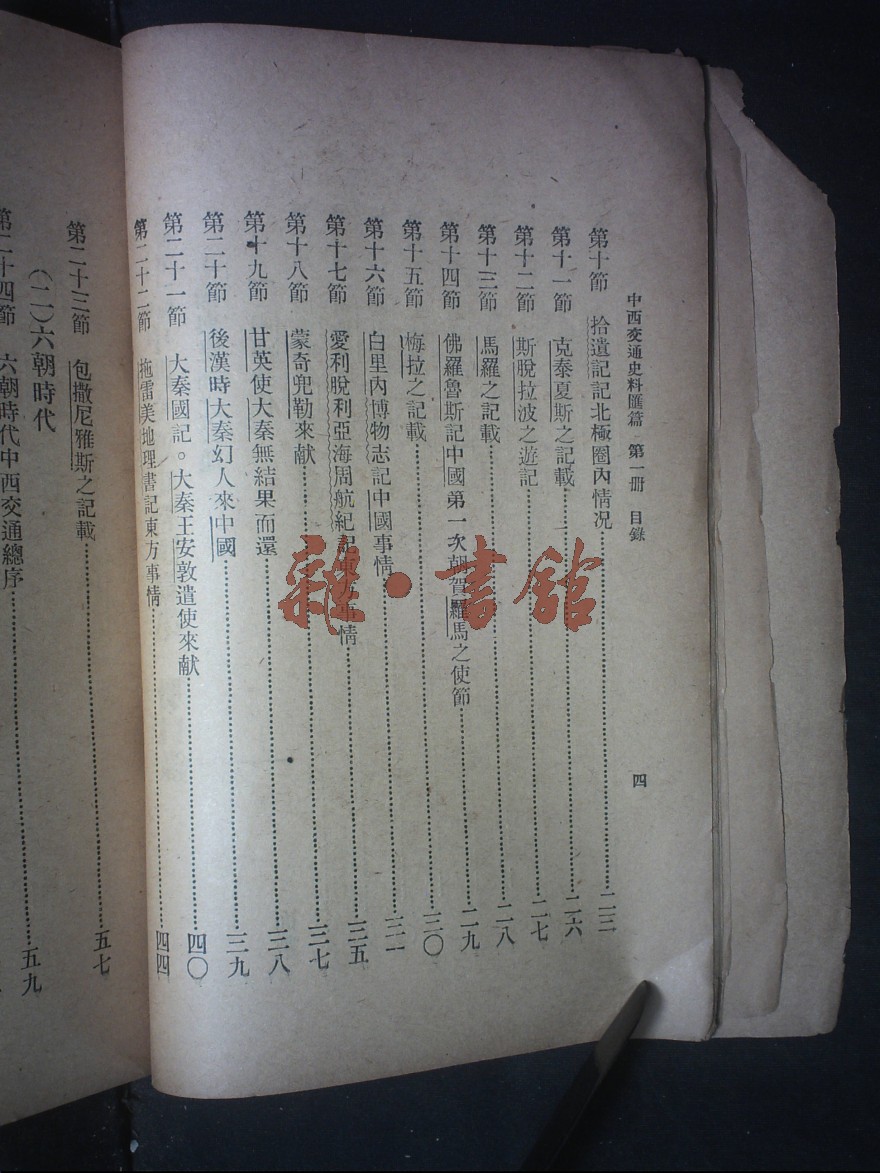 中西交通史料匯篇　第一册　目錄　四
第十節　拾遺記記北極圈內情況……二三
第十一節　克泰夏斯之記載……二六
第十二節　斯脫拉波之遊記……二七
第十三節　馬羅之記載……二八
第十四節　佛羅魯斯記中國第一次朝賀羅馬之使節……二九
第十五節　梅拉之記載……三〇
第十六節　白里內博物志記中國事情……三一
第十七節　愛利脫利亞海周航紀記東方事情……三五
第十八節　蒙奇兜勒來献……三七
第十九節　甘英使大秦無結果而還……三八
第二十節　後漢時大秦幻人來中國……三九
第二十一節　大秦國記。大秦王安敦遣使來献……四〇
第二十二節　拖雷美地理書記東方事情……四四
第二十三節　包撒尼雅斯之記載……五七
(二)六朝時代
第二十四節　六朝時代中西交通總序……五九
雜·書館